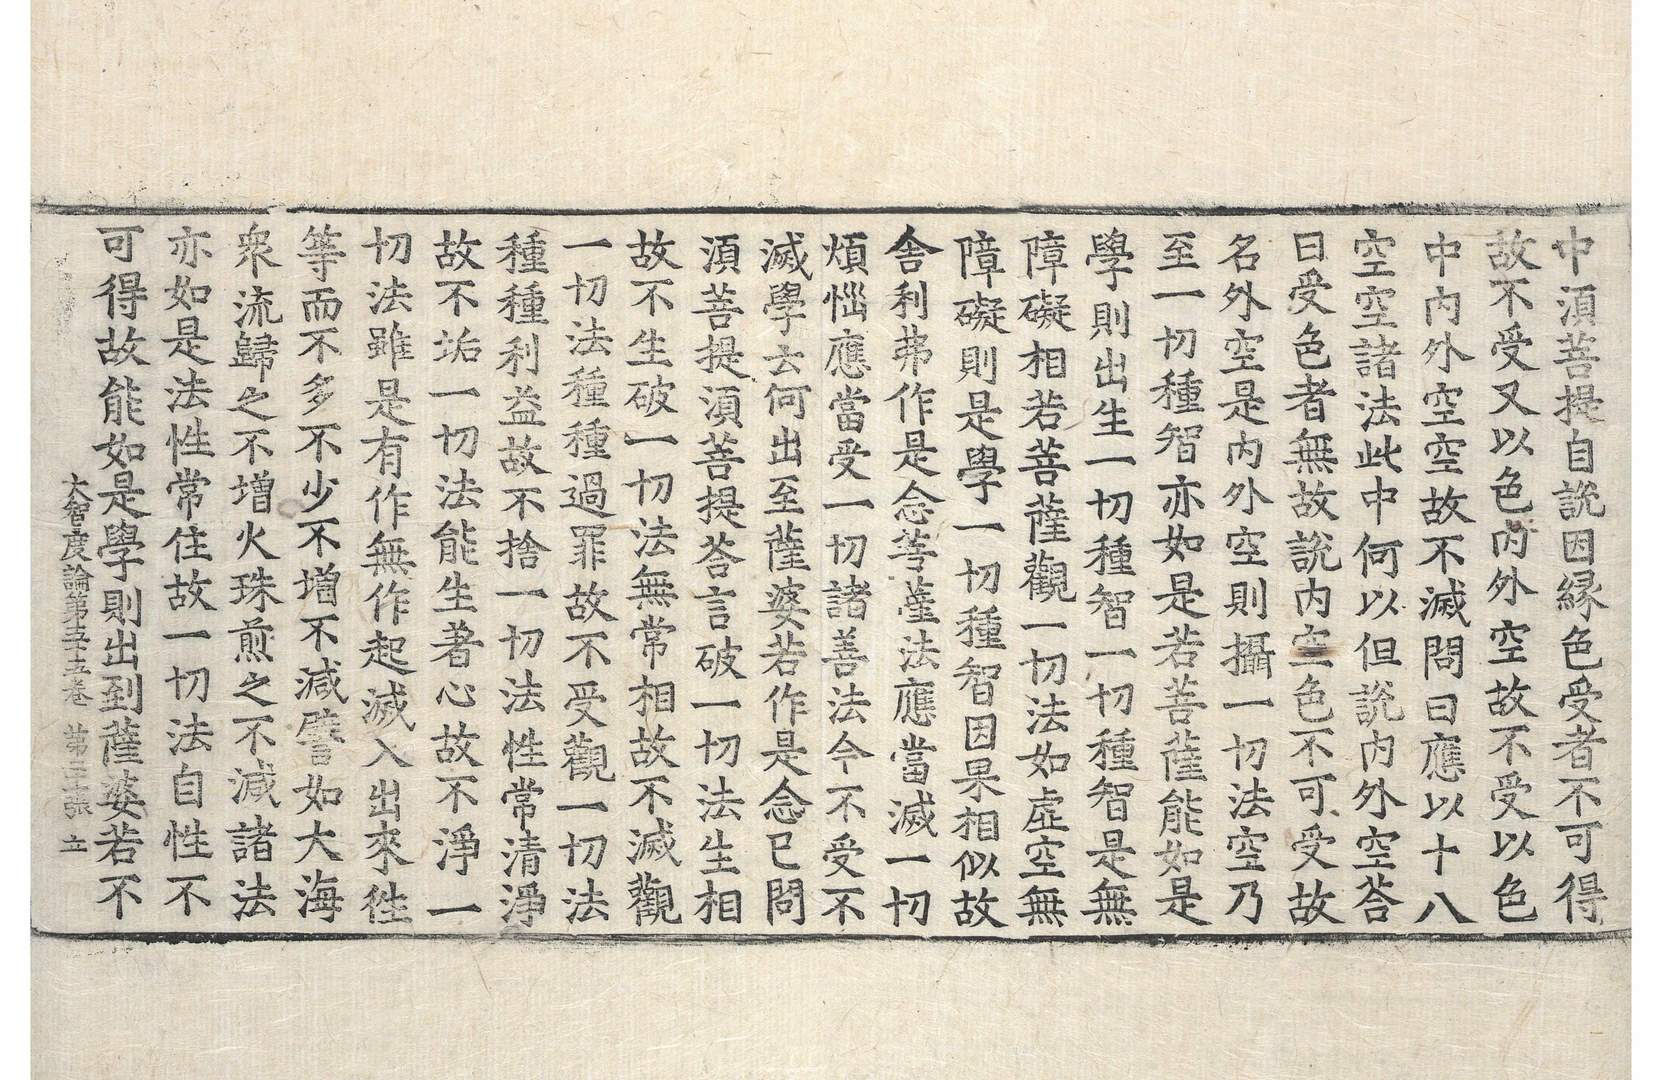 中湏菩提自說因緣色受者不可得
故不受又以色內外空故不受以色
中內外空空故不滅問曰應以十八
空空諸法此中何以但說內外空荅
曰受色者無故說內空色不可受故
名外空是內外空則攝一切法空乃
至一切種智亦如是若菩薩能如是
學則出生一切種智一切種智是無
障礙相若菩薩觀一切法如虛空無
障礙則是學一切種智因果相似故
舍利弗作是念菩薩法應當滅一切
煩惱應當受一切諸善法今不受不
滅學云何出至薩婆若作是念已問
湏菩提湏菩提荅言破一切法生相
故不生破一切法無常相故不滅觀
一切法種種過罪故不受觀一切法
種種利益故不捨一切法性常清淨
故不垢一切法能生著心故不淨一
切法雖是有作無作起滅入出來徃
等而不多不少不增不減譬如大海
衆流歸之不增火珠煎之不減諸法
亦如是法性常住故一切法自性不
可得故能如是學則出到薩婆若不
大智度論第五十五卷 第三張 立